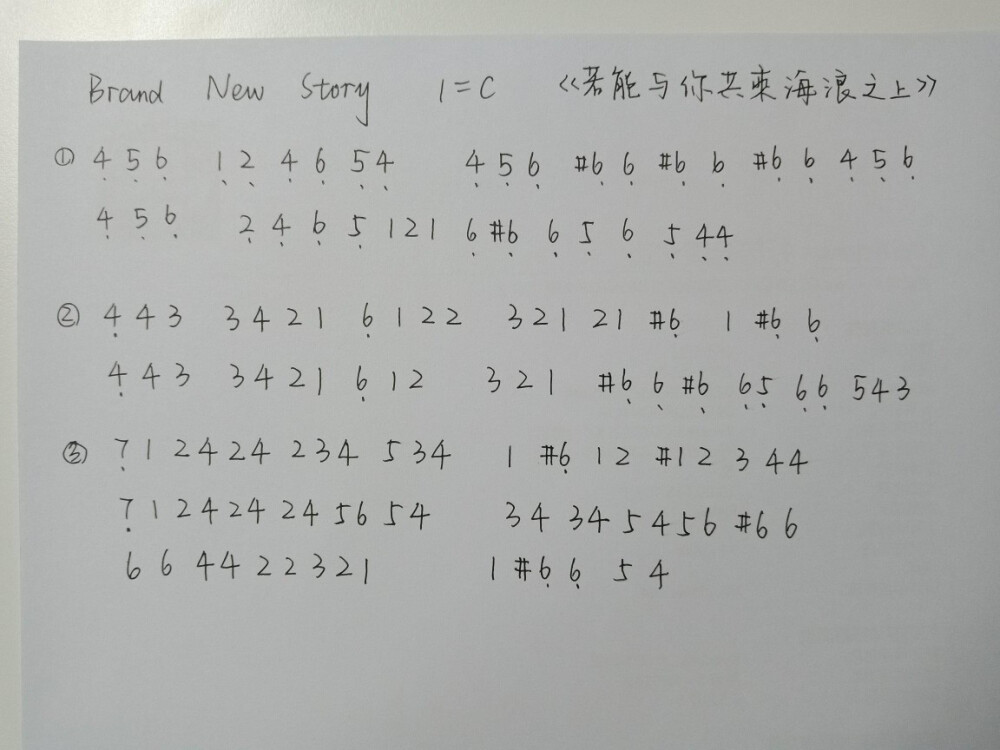 Brand New Story 1=C 《若能与你共乘海浪之上》
① 4̣ 5̣ 6̣ 1̣ 2̣ 4̣ 6̣ 5̣ 4̣ 4̣ 5̣ 6̣ #6̣ 6̣ #6̣ 6̣ #6̣ 6̣ 4̣ 5̣ 6̣
4̣ 5̣ 6̣ 2̣ 4̣ 6̣ 5̣ 1 2 1 6̣ #6̣ 6̣ 5̣ 6̣ 5̣ 4̣ 4̣
② 4̣ 4 3 3 4 2 1 6̣ 1 2 2 3 2 1 2 1 #6̣ 1 #6̣ 6̣
4̣ 4 3 3 4 2 1 6̣ 1 2 3 2 1 #6̣ 6̣ #6̣ 6̣ 5̣ 6̣ 6̣ 5 4 3
③ 7̣ 1 2 4 2 4 2 3 4 5 3 4 1 #6̣ 1 2 #1 2 3 4 4
7̣ 1 2 4 2 4 2 4 5 6 5 4 3 4 3 4 5 4 5 6 #6 6
6 6 4 4 2 2 3 2 1 1 #6̣ 6̣ 5 4